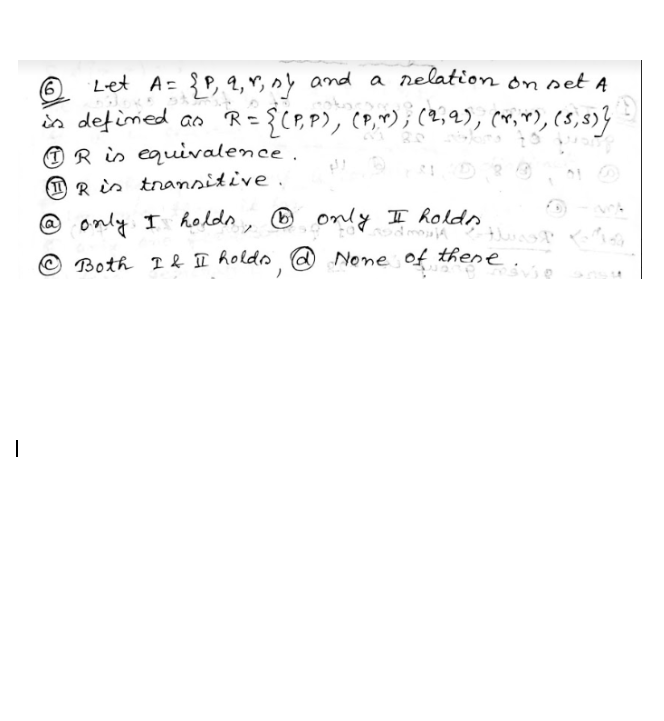 ⑥ Let A = {P, q, r, s} and a relation on set A
is defined as R = {(P,P), (P,r); (q,q), (r,r), (s,s)}
Ⓘ R is equivalence.
Ⓘ︎Ⓘ R is transitive.
ⓐ only I holds, ⓑ only II holds
ⓒ Both I & II holds, ⓓ None of these.